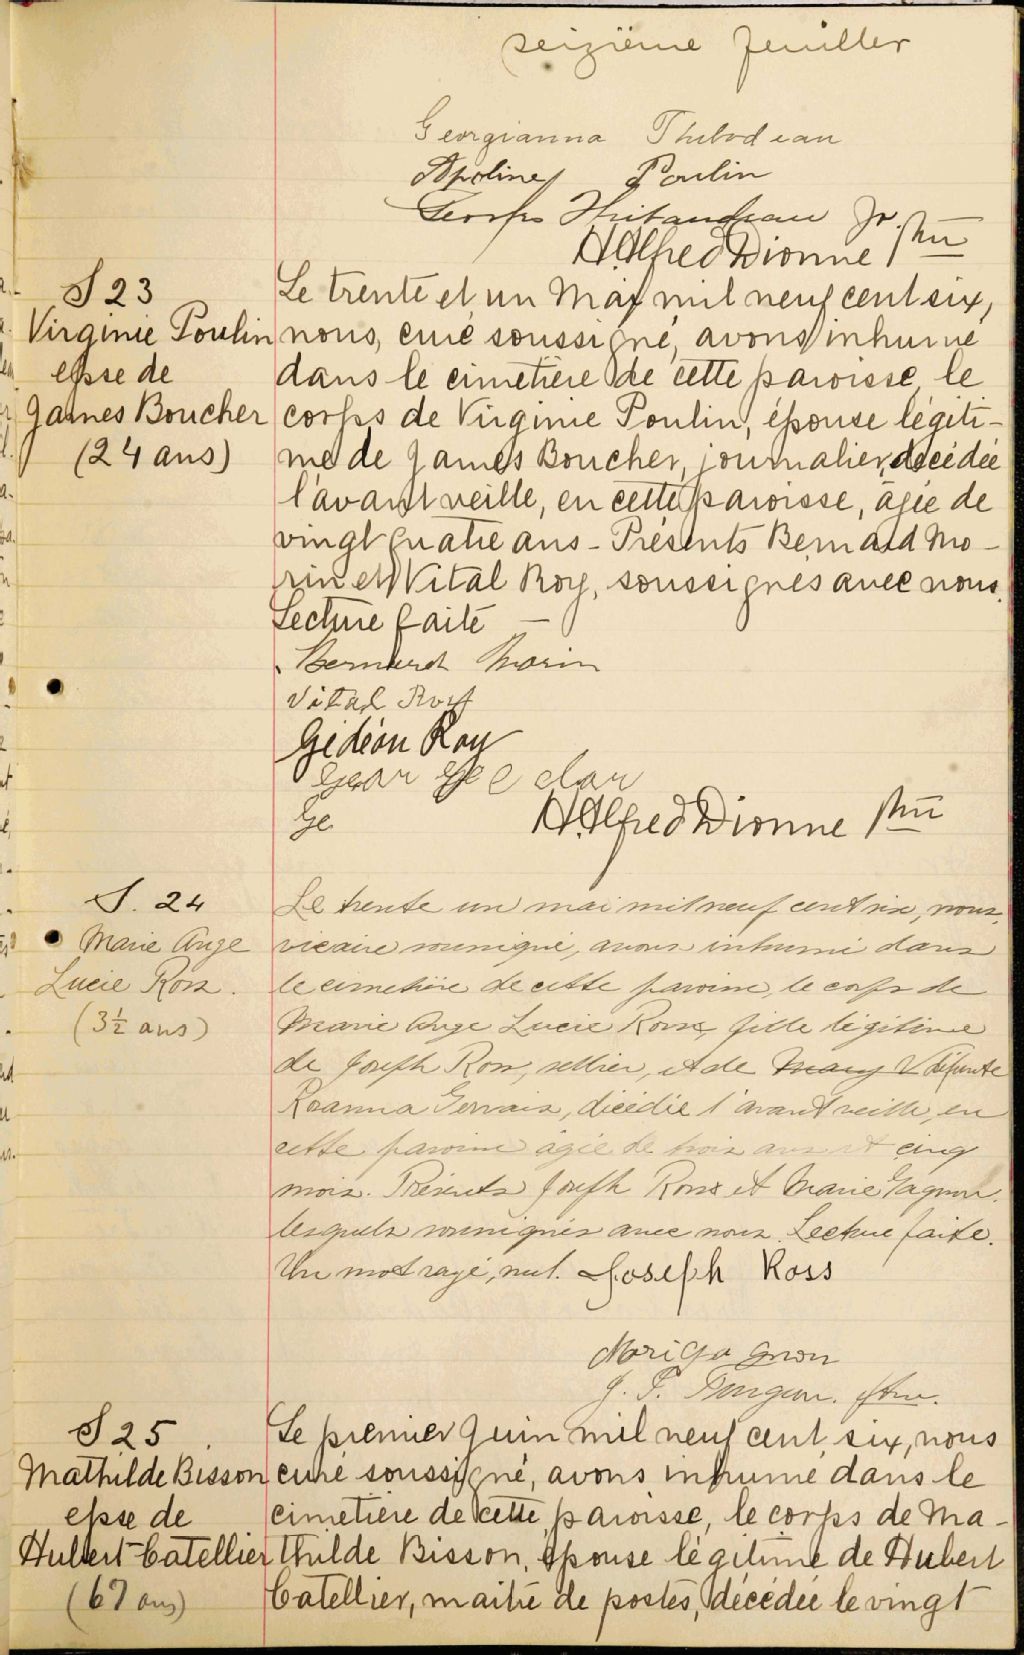 seizième feuillet
Georgianna Thibodeau
Apoline Poulin
Georges Thibaudeau Jr.
H. Alfred Dionne Ptre
S 23
Virginie Poulin
epse de
James Boucher
(24 ans)
Le trente et un Mai mil neuf cent six,
nous, curé soussigné, avons inhumé
dans le cimetière de cette paroisse, le
corps de Virginie Poulin, épouse légiti-
me de James Boucher, journalier, décédée
l'avant veille, en cette paroisse, âgée de
vingt quatre ans - Présents Bernard Mo-
rin et Vital Roy, soussignés avec nous.
Lecture faite —
Bernard Morin
Vital Roy
Gédéon Roy
Ge
H. Alfred Dionne Ptre
S. 24
Marie Ange
Lucie Ross.
(3½ ans)
Le trente un mai mil neuf cent six, nous,
vicaire soussigné, avons inhumé dans
le cimetière de cette paroisse, le corps de
Marie Ange Lucie Ross, fille légitime
de Joseph Ross, sellier, et de Mary V défunte
Rosanna Gervais, décédée l'avant veille, en
cette paroisse âgée de trois ans et cinq
mois. Présents Joseph Ross et Marie Gagnon.
lesquels soussignés avec nous. Lecture faite.
Un mot rayé, nul. Joseph Ross
Mari Ga gnon
J. F. Ptre.
S 25
Mathilde Bisson
epse de
Hubert Catellier
(67 ans)
Le premier Juin mil neuf cent six, nous
curé soussigné, avons inhumé dans le
cimetière de cette paroisse, le corps de Ma-
thilde Bisson, épouse légitime de Hubert
Catellier, maître de postes, décédée le vingt